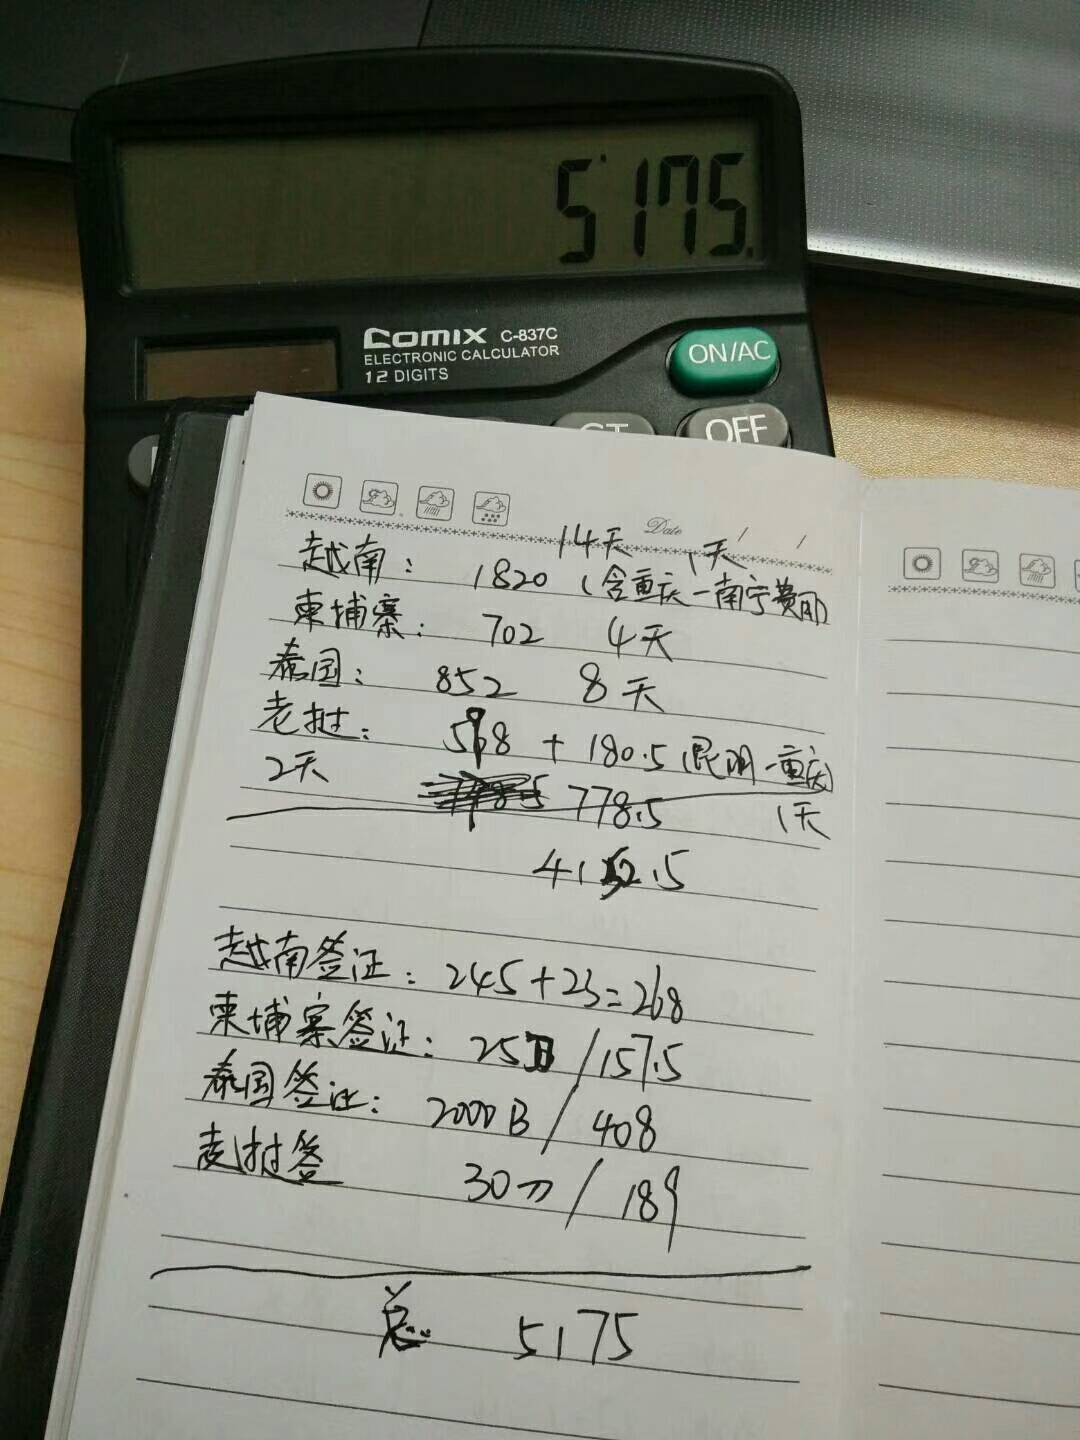 5'175.
Comix C-837C
ELECTRONIC CALCULATOR
12 DIGITS
ON/AC
GT
OFF
Date / /
14天 1天
越南: 1820 (含重庆-南宁费用)
柬埔寨: 702 4天
泰国: 852 8天
老挝: 598 + 180.5 (昆明-重庆)
2天 778.5 1天
4152.5
越南签证: 245+23=268
柬埔寨签证: 25刀/157.5
泰国签证: 2000B/408
老挝签 30刀/189
总: 5175